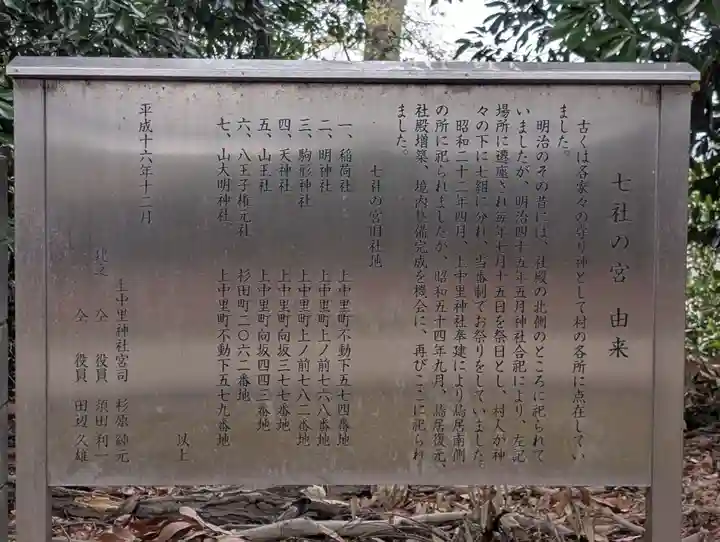 七社の宮 由来
古くは各家々の守り神として村の各所に点在してい
ました。
明治のその昔には、社殿の北側のところに祀られて
いましたが、明治四十五年五月神社合祀により、左記
場所に遷座され毎年七月十五日を祭日とし、村人が神
々の下に七組に分れ、当番制でお祭りをしていました。
昭和二十二年四月、上中里神社奉建により鳥居南側
の所に祀られましたが、昭和五十四年九月、鳥居復元、
社殿増築、境内整備完成を機会に、再びここに祀られ
ました。
七社の宮旧社地
一、稲荷社 上中里町不動下五七四番地
二、明神社 上中里町上ノ前七六八番地
三、駒形神社 上中里町上ノ前七八二番地
四、天神社 上中里町向坂三七七番地
五、山王社 上中里町向坂四四三番地
六、八王子権元社 杉田町二〇六二番地
七、山大明神社 上中里町不動下五七九番地
以上
平成十六年十二月
上中里神社宮司 杉原 元
仝 役員 須田利一
仝 役員 田辺久雄